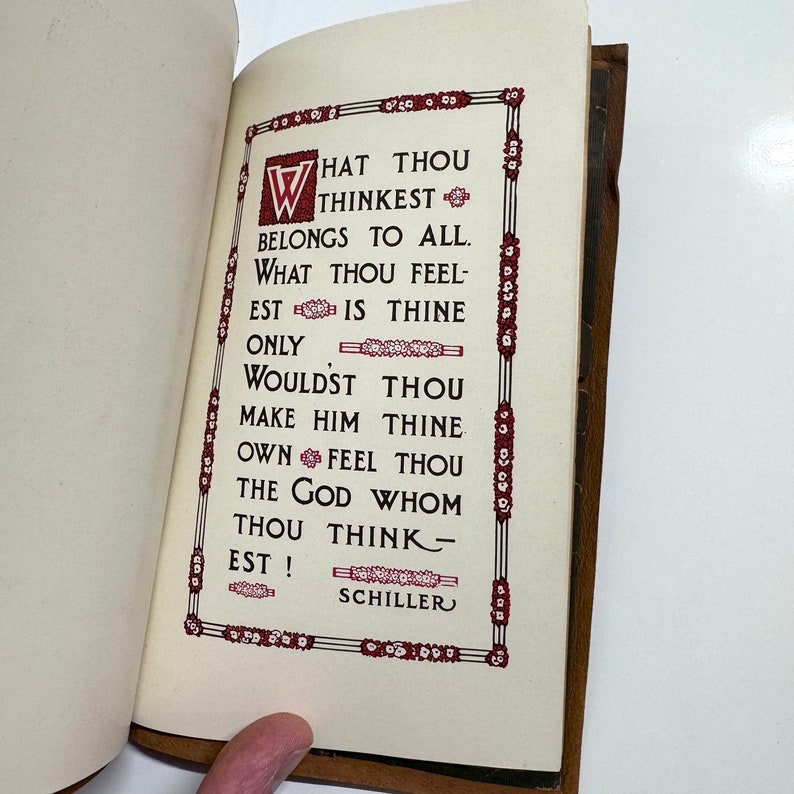 WHAT THOU
THINKEST
BELONGS TO ALL.
WHAT THOU FEEL-
EST IS THINE
ONLY,
WOULD'ST THOU
MAKE HIM THINE
OWN FEEL THOU
THE GOD WHOM
THOU THINK-
EST!
SCHILLER